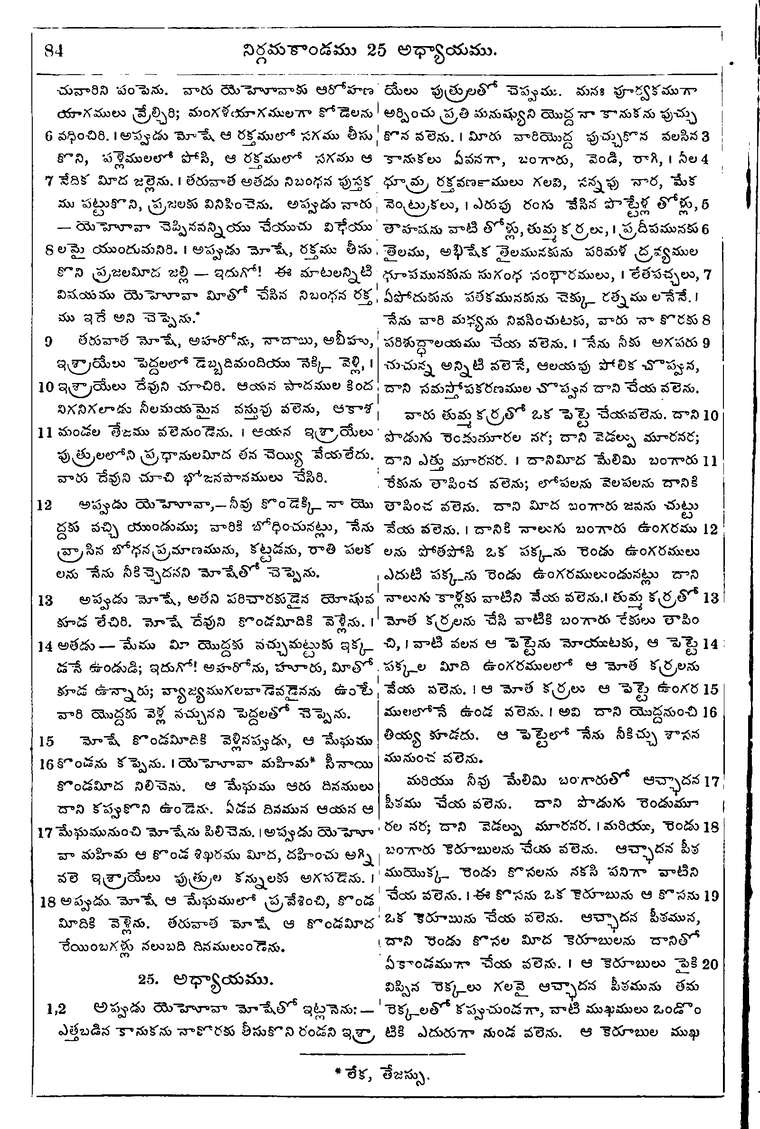 84
నిర్గమకాండము 25 అధ్యాయము.
చువారిని పంపెను. వారు యెహోవాకు ఆరోహణ
యాగములు వ్రేల్చిరి; మంగళయాగములుగా కోడెలను
6 వధించిరి. । అప్పుడు మోషే ఆ రక్తములో సగము తీసు
కొని, పళ్లెములలో పోసి, ఆ రక్తములో సగము ఆ
7 వేదిక మీద జల్లెను. । తరువాత అతడు నిబంధన పుస్తక
ము పట్టుకొని, ప్రజలకు వినిపించెను. అప్పుడు వారు
— యెహోవా చెప్పినవన్నియు చేయుచు విధేయు
8 లమై యుందుమనిరి. । అప్పుడు మోషే, రక్తము తీసు
కొని ప్రజలమీద జల్లి — ఇదుగో! ఈ మాటలన్నిటి
విషయము యెహోవా మీతో చేసిన నిబంధన రక్త
ము ఇదే అని చెప్పెను.*
9 తరువాత మోషే, అహరోను, నాదాబు, అబీహు,
ఇశ్రాయేలు పెద్దలలో డెబ్బదిమందియు నెక్కి వెళ్లి, ।
10 ఇశ్రాయేలు దేవుని చూచిరి. ఆయన పాదముల కింద
నిగనిగలాడు నీలమయమైన వస్తువు వలెను, ఆకాశ
11 మండల తేజము వలెనుండెను. । ఆయన ఇశ్రాయేలు
పుత్రులలోని ప్రధానులమీద తన చెయ్యి వేయలేదు.
వారు దేవుని చూచి భోజనపానములు చేసిరి.
12 అప్పుడు యెహోవా,— నీవు కొండెక్కి నా యొ
ద్దకు వచ్చి యుండుము; వారికి బోధించునట్లు, నేను
వ్రాసిన బోధనప్రమాణమును, కట్టడను, రాతి పలక
లను నేను నీకిచ్చెదనని మోషేతో చెప్పెను.
13 అప్పుడు మోషే, అతని పరిచారకుడైన యోషువ
కూడ లేచిరి. మోషే దేవుని కొండమీదికి వెళ్లెను. ।
14 అతడు — మేము మీ యొద్దకు వచ్చుమట్టుకు ఇక్క
డనే ఉండుడి; ఇదుగో! అహరోను, హూరు, మీతో
కూడ ఉన్నారు; వ్యాజ్యముగలవాడెవడైనను ఉంటే
వారి యొద్దకు వెళ్ల వచ్చునని పెద్దలతో చెప్పెను.
15 మోషే కొండమీదికి వెళ్లినప్పుడు, ఆ మేఘము
16 కొండను కప్పెను. । యెహోవా మహిమ* సీనాయి
కొండమీద నిలిచెను. ఆ మేఘము ఆరు దినములు
దాని కప్పుకొని ఉండెను. ఏడవ దినమున ఆయన ఆ
17 మేఘమునుంచి మోషేను పిలిచెను. । అప్పుడు యెహో
వా మహిమ ఆ కొండ శిఖరము మీద, దహించు అగ్ని
వలె ఇశ్రాయేలు పుత్రుల కన్నులకు అగపడెను. ।
18 అప్పుడు మోషే ఆ మేఘములో ప్రవేశించి, కొండ
మీదికి వెళ్లెను. తరువాత మోషే ఆ కొండమీద
రేయింబగళ్లు నలుబది దినములుండెను.
25. అధ్యాయము.
1,2 అప్పుడు యెహోవా మోషేతో ఇట్లనెను: —
ఎత్తబడిన కానుకను నాకొరకు తీసుకొని రండని ఇశ్రా
యేలు పుత్రులతో చెప్పుము. మనః పూర్వకముగా
అర్పించు ప్రతి మనుష్యుని యొద్ద నా కానుకను పుచ్చు
కొన వలెను. । మీరు వారియొద్ద పుచ్చుకొన వలసిన 3
కానుకలు ఏవనగా, బంగారు, వెండి, రాగి, । నీల 4
ధూమ్ర రక్తవర్ణకాములు గలవి, సన్నపు నార, మేక
వెంట్రుకలు, । ఎరుపు రంగు వేసిన పొట్టేళ్ల తోళ్లు, 5
తాహషను వాటి తోళ్లు, తుమ్మ కర్రలు, । ప్రదీపమునకు 6
తైలము, అభిషేక తైలమునకును పరిమళ ద్రవ్యముల
ధూపమునకును సుగంధ సంభారములు, । లేతపచ్చలు, 7
ఏఫోదుకును పతకమునకును చెక్కు రత్నము లనేవే. ।
నేను వారి మధ్యను నివసించుటకు, వారు నా కొరకు 8
పరిశుద్ధాలయము చేయ వలెను. । నేను నీకు అగపరు 9
చుచున్న అన్నిటి వలెనే, ఆలయపు పోలిక చొప్పున,
దాని సమస్తోపకరణముల చొప్పున దాని చేయ వలెను.
వారు తుమ్మ కర్రతో ఒక పెట్టె చేయవలెను. దాని 10
పొడుగు రెండుమూరల నర; దాని వెడల్పు మూరనర;
దాని ఎత్తు మూరనర. । దానిమీద మేలిమి బంగారు 11
రేకును తాపించ వలెను; లోపలను వెలపలను దానికి
తాపించ వలెను. దాని మీద బంగారు జవను చుట్టు
వేయ వలెను. । దానికి నాలుగు బంగారు ఉంగరము 12
లను పోతపోసి ఒక పక్కను రెండు ఉంగరములు
ఎదుటి పక్కను రెండు ఉంగరములుండునట్లు దాని
నాలుగు కాళ్లకు వాటిని వేయ వలెను. । తుమ్మ కర్రతో 13
మోత కర్రలను చేసి వాటికి బంగారు రేకులు తాపిం
చి, । వాటి వలన ఆ పెట్టెను మోయుటకు, ఆ పెట్టె 14
పక్కల మీది ఉంగరములలో ఆ మోత కర్రలను
వేయ వలెను. । ఆ మోత కర్రలు ఆ పెట్టె ఉంగర 15
ములలోనే ఉండ వలెను. । అవి దాని యొద్దనుంచి 16
తియ్య కూడదు. ఆ పెట్టెలో నేను నీకిచ్చు శాసన
మునుంచ వలెను.
మరియు నీవు మేలిమి బంగారుతో ఆచ్ఛాదన 17
పీఠము చేయ వలెను. దాని పొడుగు రెండుమూ
రల నర; దాని వెడల్పు మూరనర. । మరియు, రెండు 18
బంగారు కెరూబులను చేయ వలెను. ఆచ్ఛాదన పీఠ
ముయొక్క రెండు కొసలను నకసి పనిగా వాటిని
చేయ వలెను. । ఈ కొసను ఒక కెరూబును ఆ కొసను 19
ఒక కెరూబును చేయ వలెను. ఆచ్ఛాదన పీఠమున,
దాని రెండు కొసల మీద కెరూబులను దానితో
ఏకాండముగా చేయ వలెను. । ఆ కెరూబులు పైకి 20
విప్పిన రెక్కలు గలవై ఆచ్ఛాదన పీఠమును తమ
రెక్కలతో కప్పుచుండగా, వాటి ముఖములు ఒండొం
టికి ఎదురుగా నుండ వలెను. ఆ కెరూబుల ముఖ
* లేక, తేజస్సు.